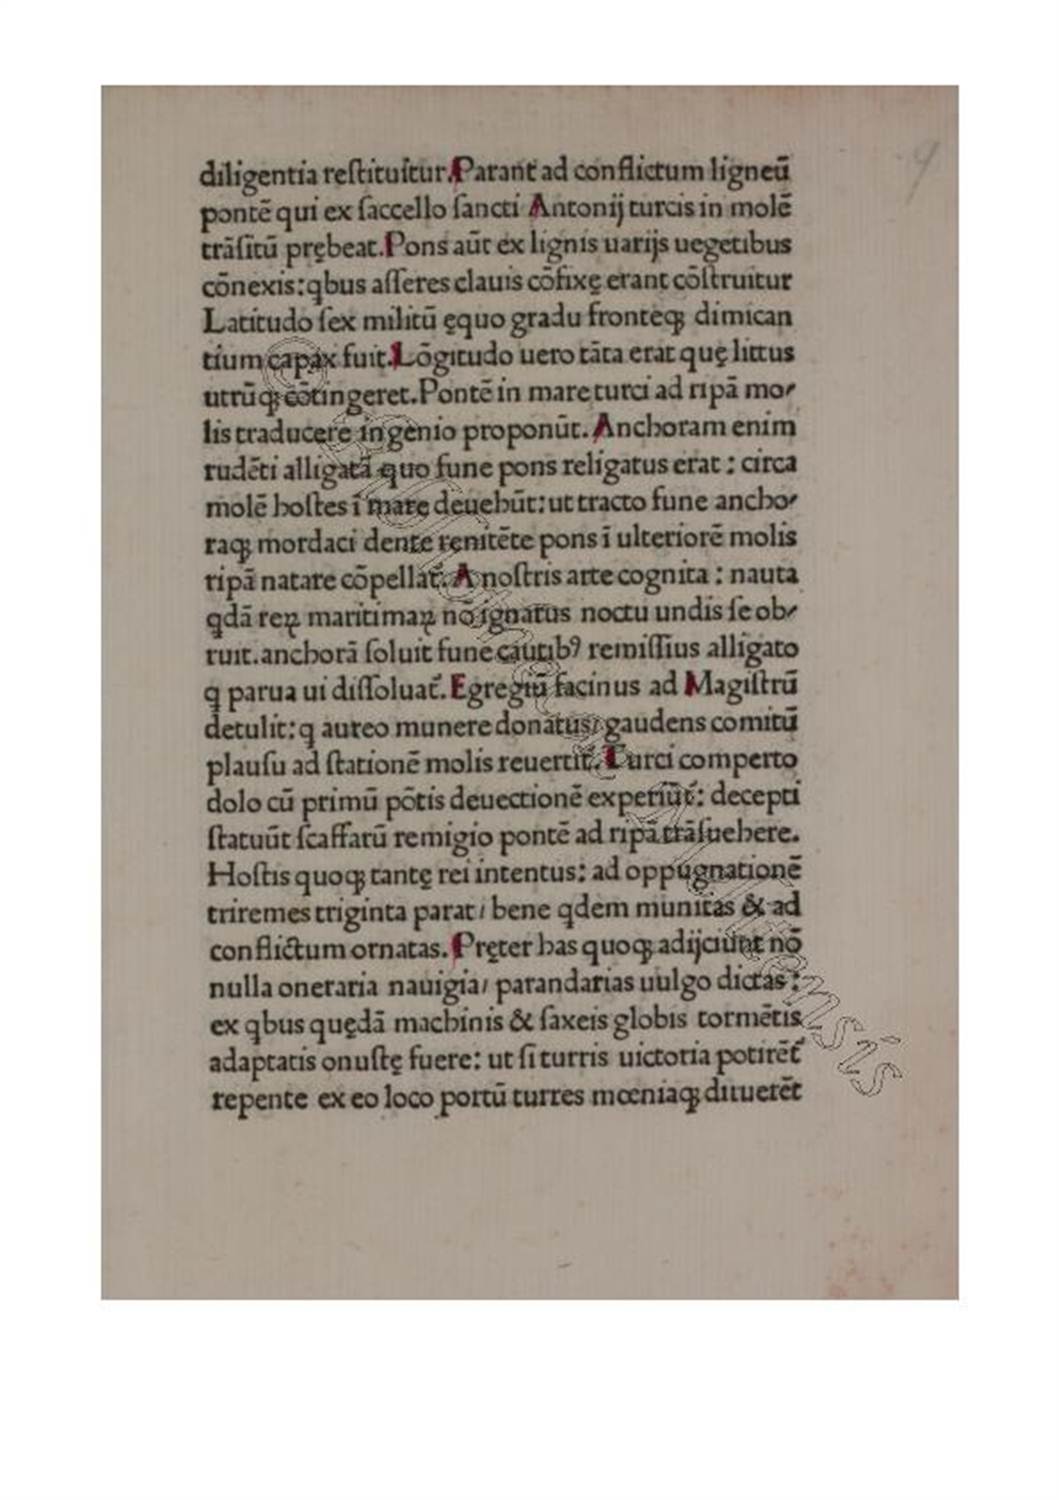 9
diligentia reſtituitur. Parant̄ ad conflictum ligneū
pontē qui ex ſaccello ſancti Antonij turcis in molē
trāſitū prębeat. Pons aūt ex lignis uarijs uegetibus
cōnexis: qbus aſſeres clauis cōfixę erant cōſtruitur
Latitudo ſex militū ęquo gradu fronteqꝫ dimican
tium capax fuit. Lōgitudo uero tāta erat quę littus
utrūqꝫ cōtingeret. Pontē in mare turci ad ripā mo⸗
lis traducere ingenio proponūt. Anchoram enim
rudēti alligatā quo fune pons religatus erat: circa
molē hoſtes ī mare deuehūt: ut tracto fune ancho⸗
raqꝫ mordaci dente renitēte pons ī ulteriorē molis
ripā natare cōpellat̄. A noſtris arte cognita: nauta
qdā reꝝ maritimaꝝ nō ignatus noctu undis ſe ob⸗
ruit. anchorā ſoluit fune cautibꝰ remiſſius alligato
q parua ui diſſoluat̄. Egregiū facinus ad Magiſtrū
detulit: q aureo munere donatus/ gaudens comitū
plauſu ad ſtationē molis reuertit̄. Turci comperto
dolo cū primū pōtis deuectionē experiūt̄: decepti
ſtatuūt ſcaffarū remigio pontē ad ripā trāſuehere.
Hoſtis quoqꝫ tantę rei intentus: ad oppugnationē
triremes triginta parat/ bene qdem munitas & ad
conflictum ornatas. Pręter has quoqꝫ adijciunt nō
nulla oneraria nauigia/ parandarias uulgo dictas:
ex qbus quędā machinis & ſaxeis globis tormētis
adaptatis onuſtę fuere: ut ſi turris uictoria potirēt̄
repente ex eo loco portū turres mœniaqꝫ dituerēt